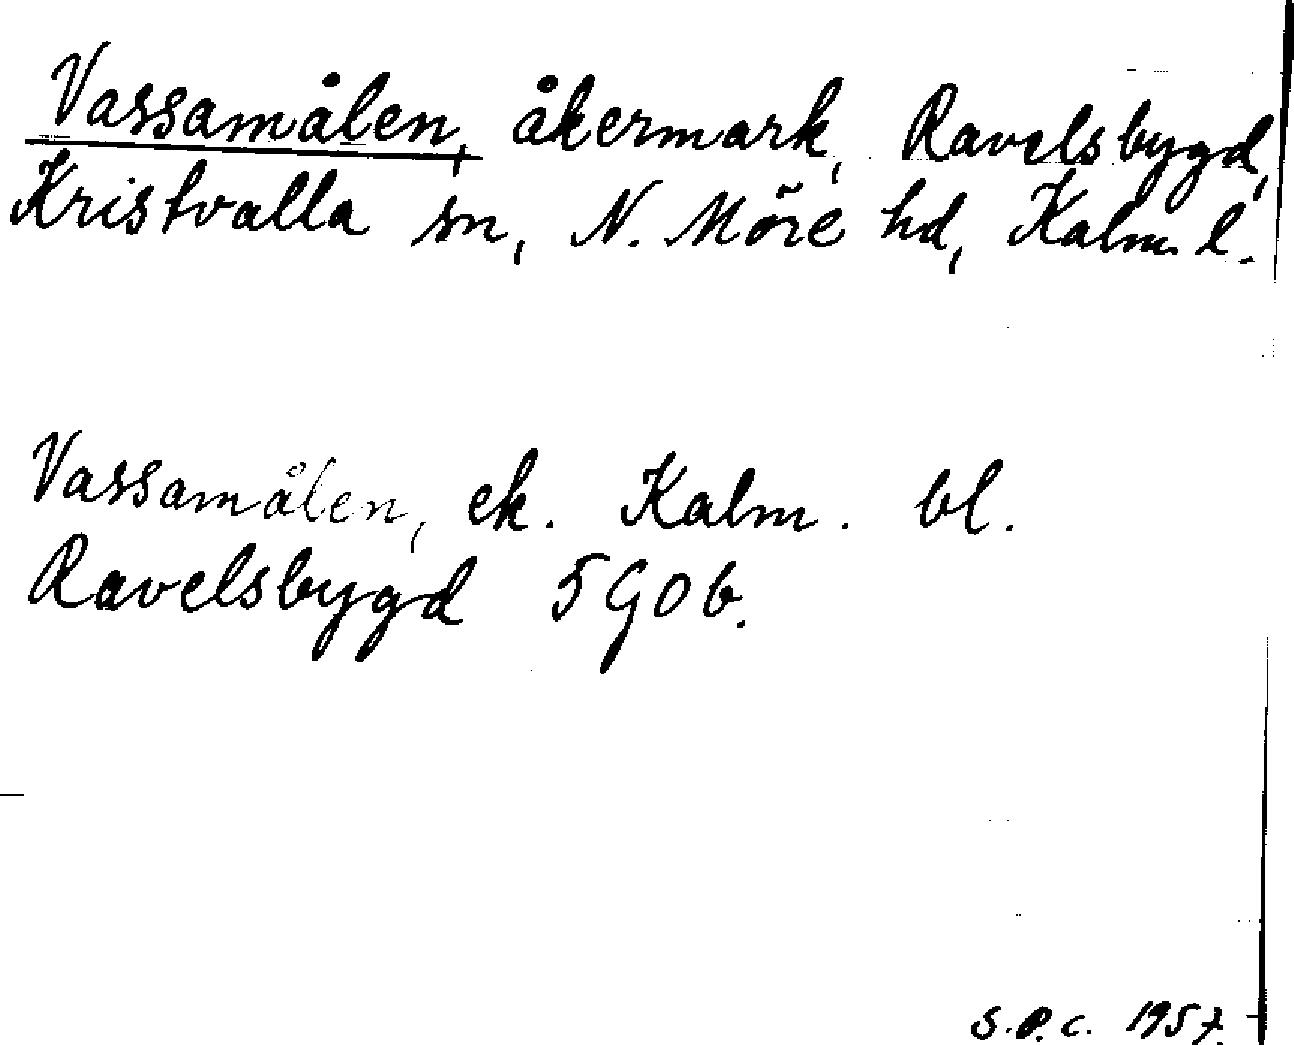 Vassamålen, åkermark, Ravelsbygd,
Kristvalla sn, N. Möre hd, Kalm. l.
Vassamålen, ek. Kalm. bl.
Ravelsbygd 5 G 0 b.
S.P.C. 1957.